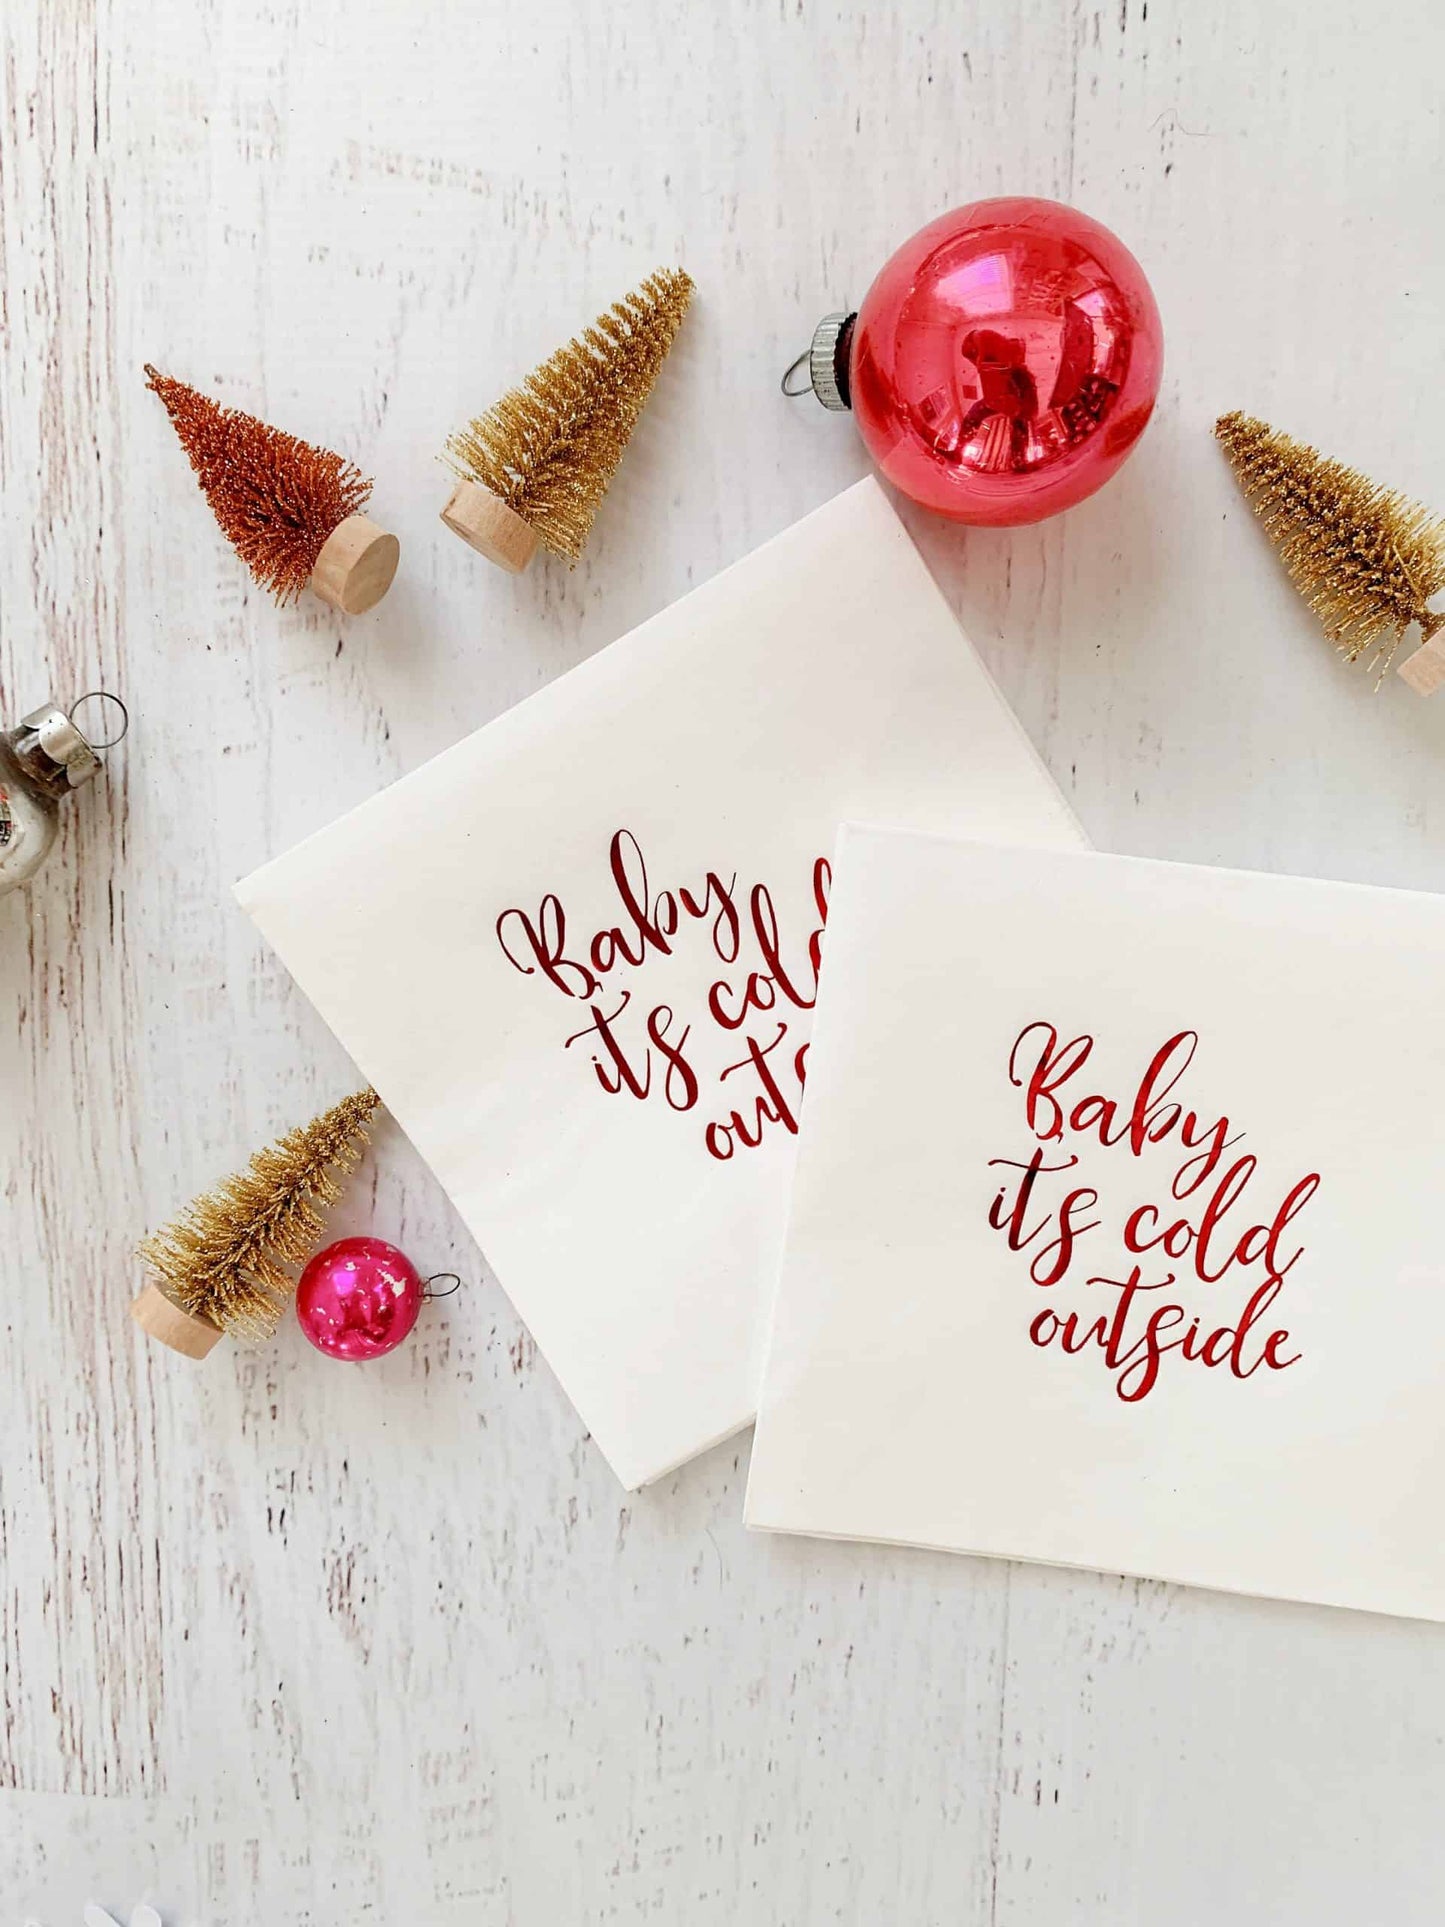 Baby
it's cold
out
Baby
it's cold
outside